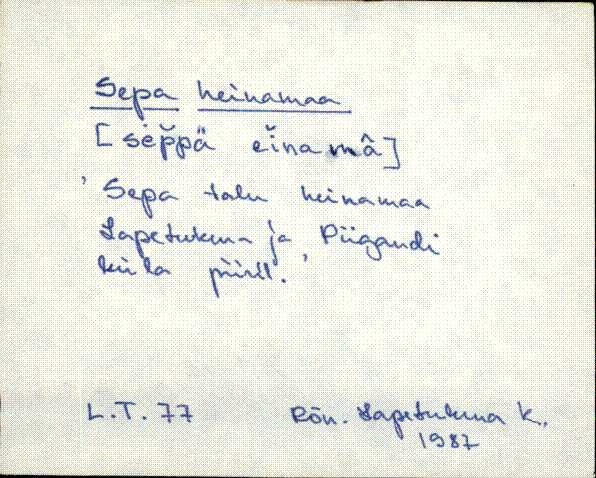 Sepa heinamaa
[sèp̆pä eĭna mâ]
' Sepa talu heinamaa
Lapetukme ja Piigandi
küla piiril. '
L.T. 77
Rõn. Lapetukme k.,
1987